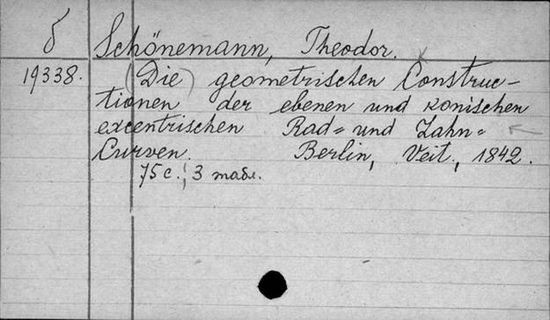 δ
Schönemann, Theodor.
19338. (Die) geometrischen Construc-
tionen der ebenen und konischen
excentrischen Rad= und Zahn=
Curven. Berlin, Veit, 1842.
75 с., 3 табл.